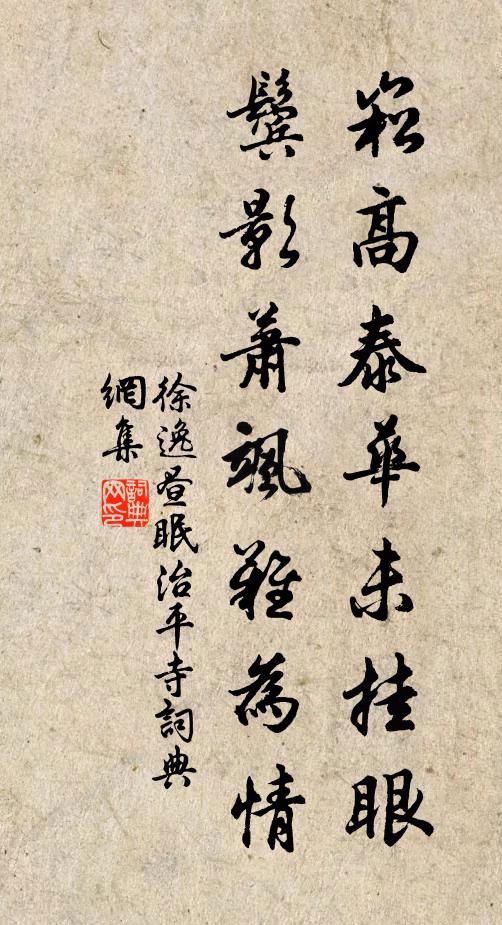 崧高泰華未挂眼
鬢影蕭颯難為情
徐逸晝眠治平寺詞典
網集
詞典網印